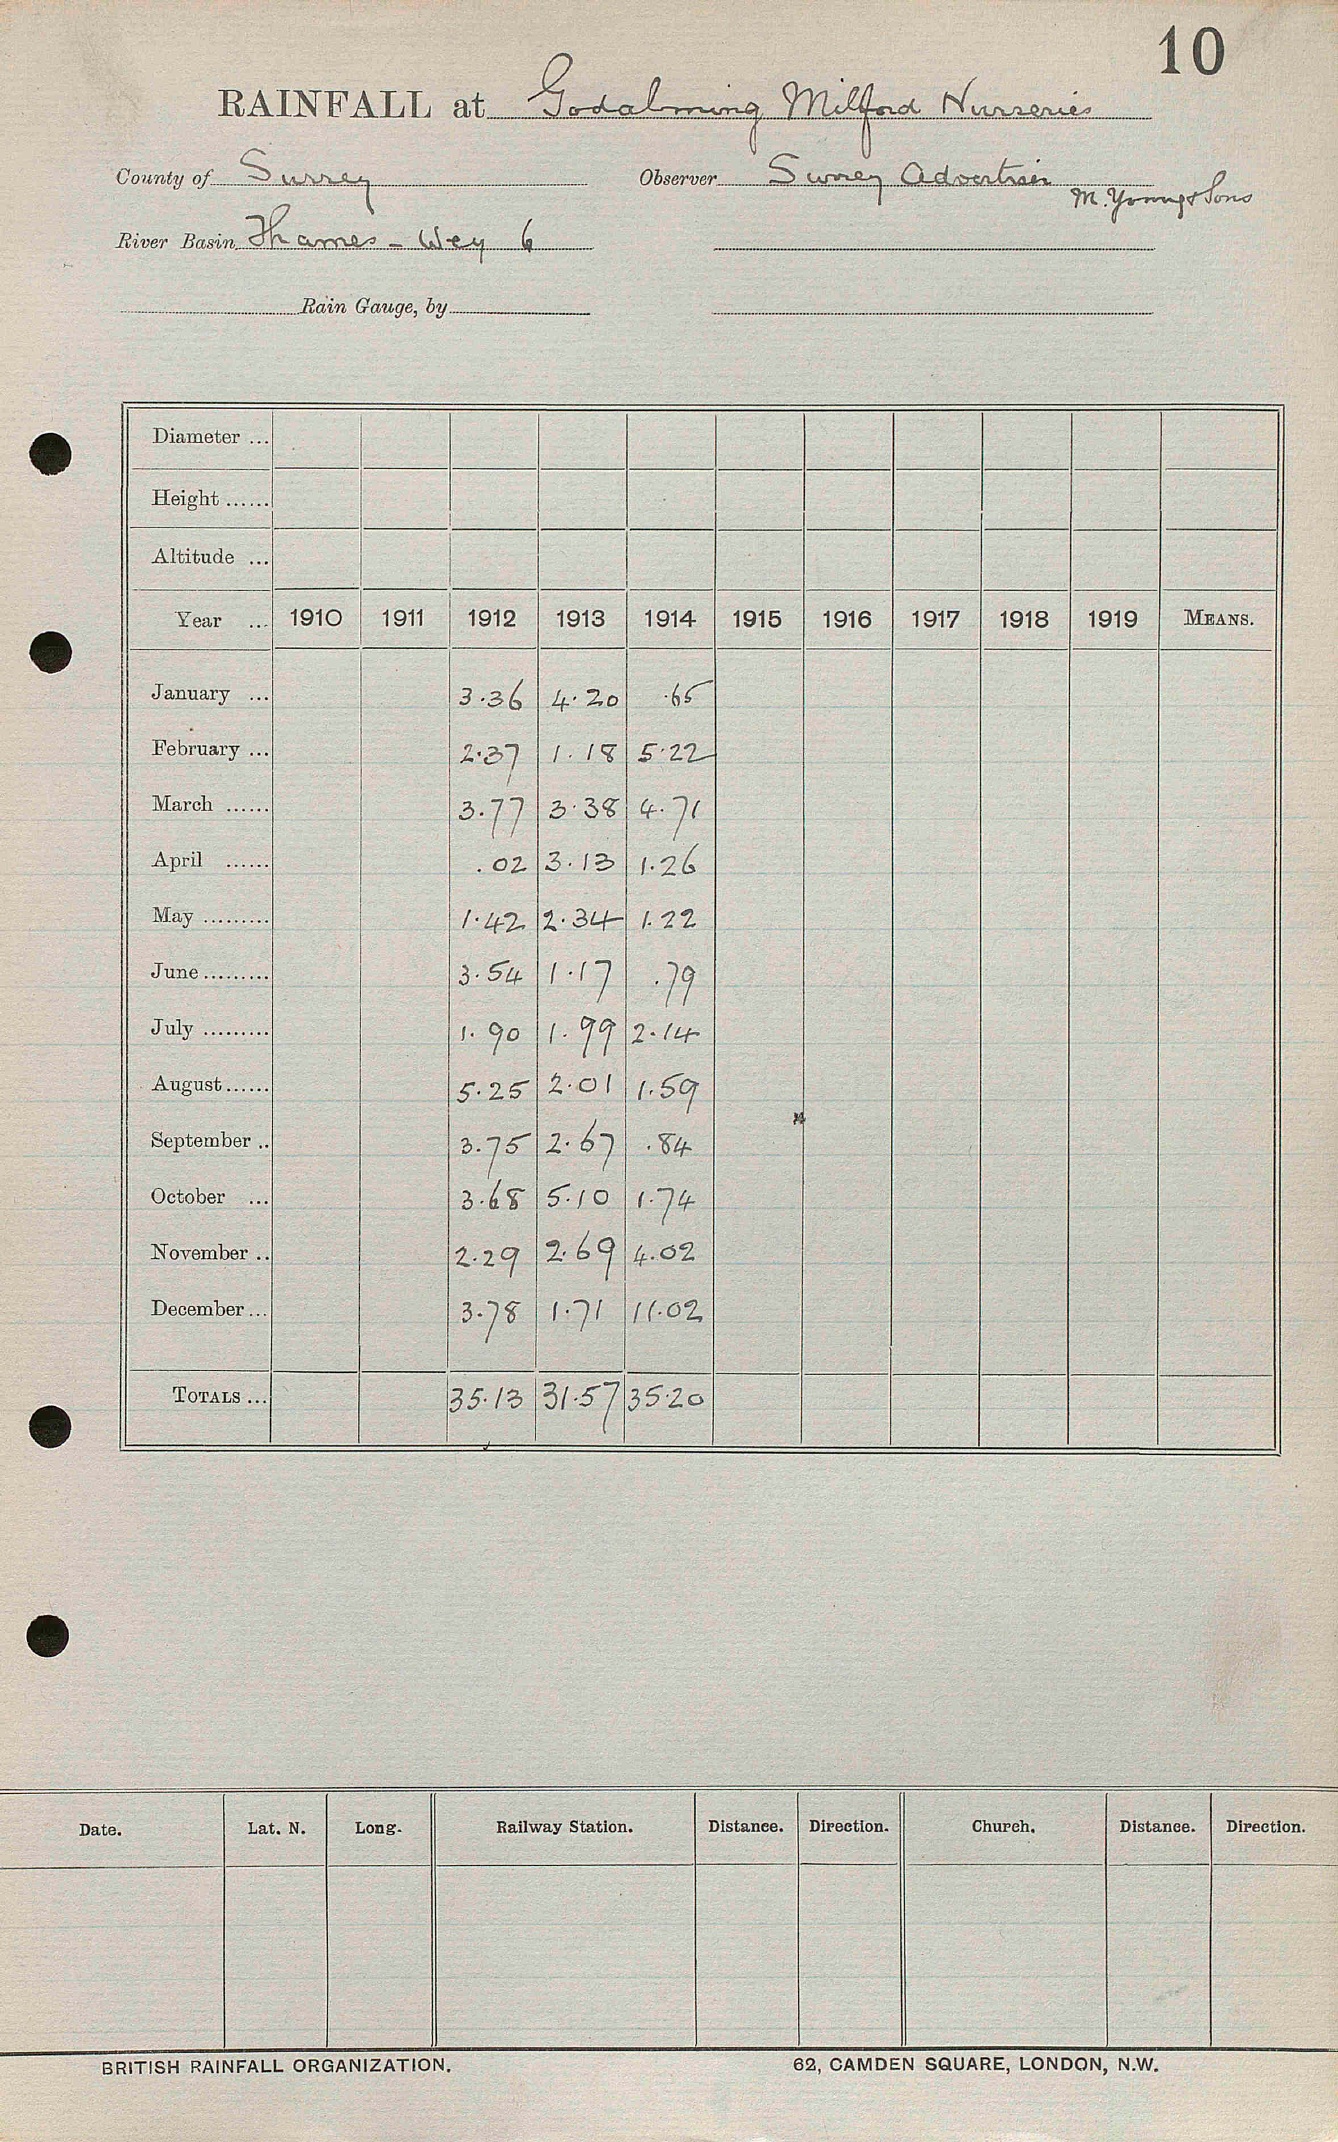 10
RAINFALL at Godalming Milford Nurseries
County of Surrey Observer Surrey Advertiser
M. Young & Sons
River Basin Thames - Wey 6
Rain Gauge, by
Diameter ...
Height ......
Altitude ...
Year ... 1910 1911 1912 1913 1914 1915 1916 1917 1918 1919 MEANS.
January ... 3.36 4.20 .65
February ... 2.37 1.18 5.22
March ...... 3.77 3.38 4.71
April ...... .02 3.13 1.26
May ......... 1.42 2.34 1.22
June ......... 3.54 1.17 .79
July ......... 1.90 1.99 2.14
August ...... 5.25 2.01 1.59
September .. 3.75 2.67 .84
October ... 3.68 5.10 1.74
November .. 2.29 2.69 4.02
December ... 3.78 1.71 11.02
TOTALS ... 35.13 31.57 35.20
Date. Lat. N. Long. Railway Station. Distance. Direction. Church. Distance. Direction.
BRITISH RAINFALL ORGANIZATION. 62, CAMDEN SQUARE, LONDON, N.W.